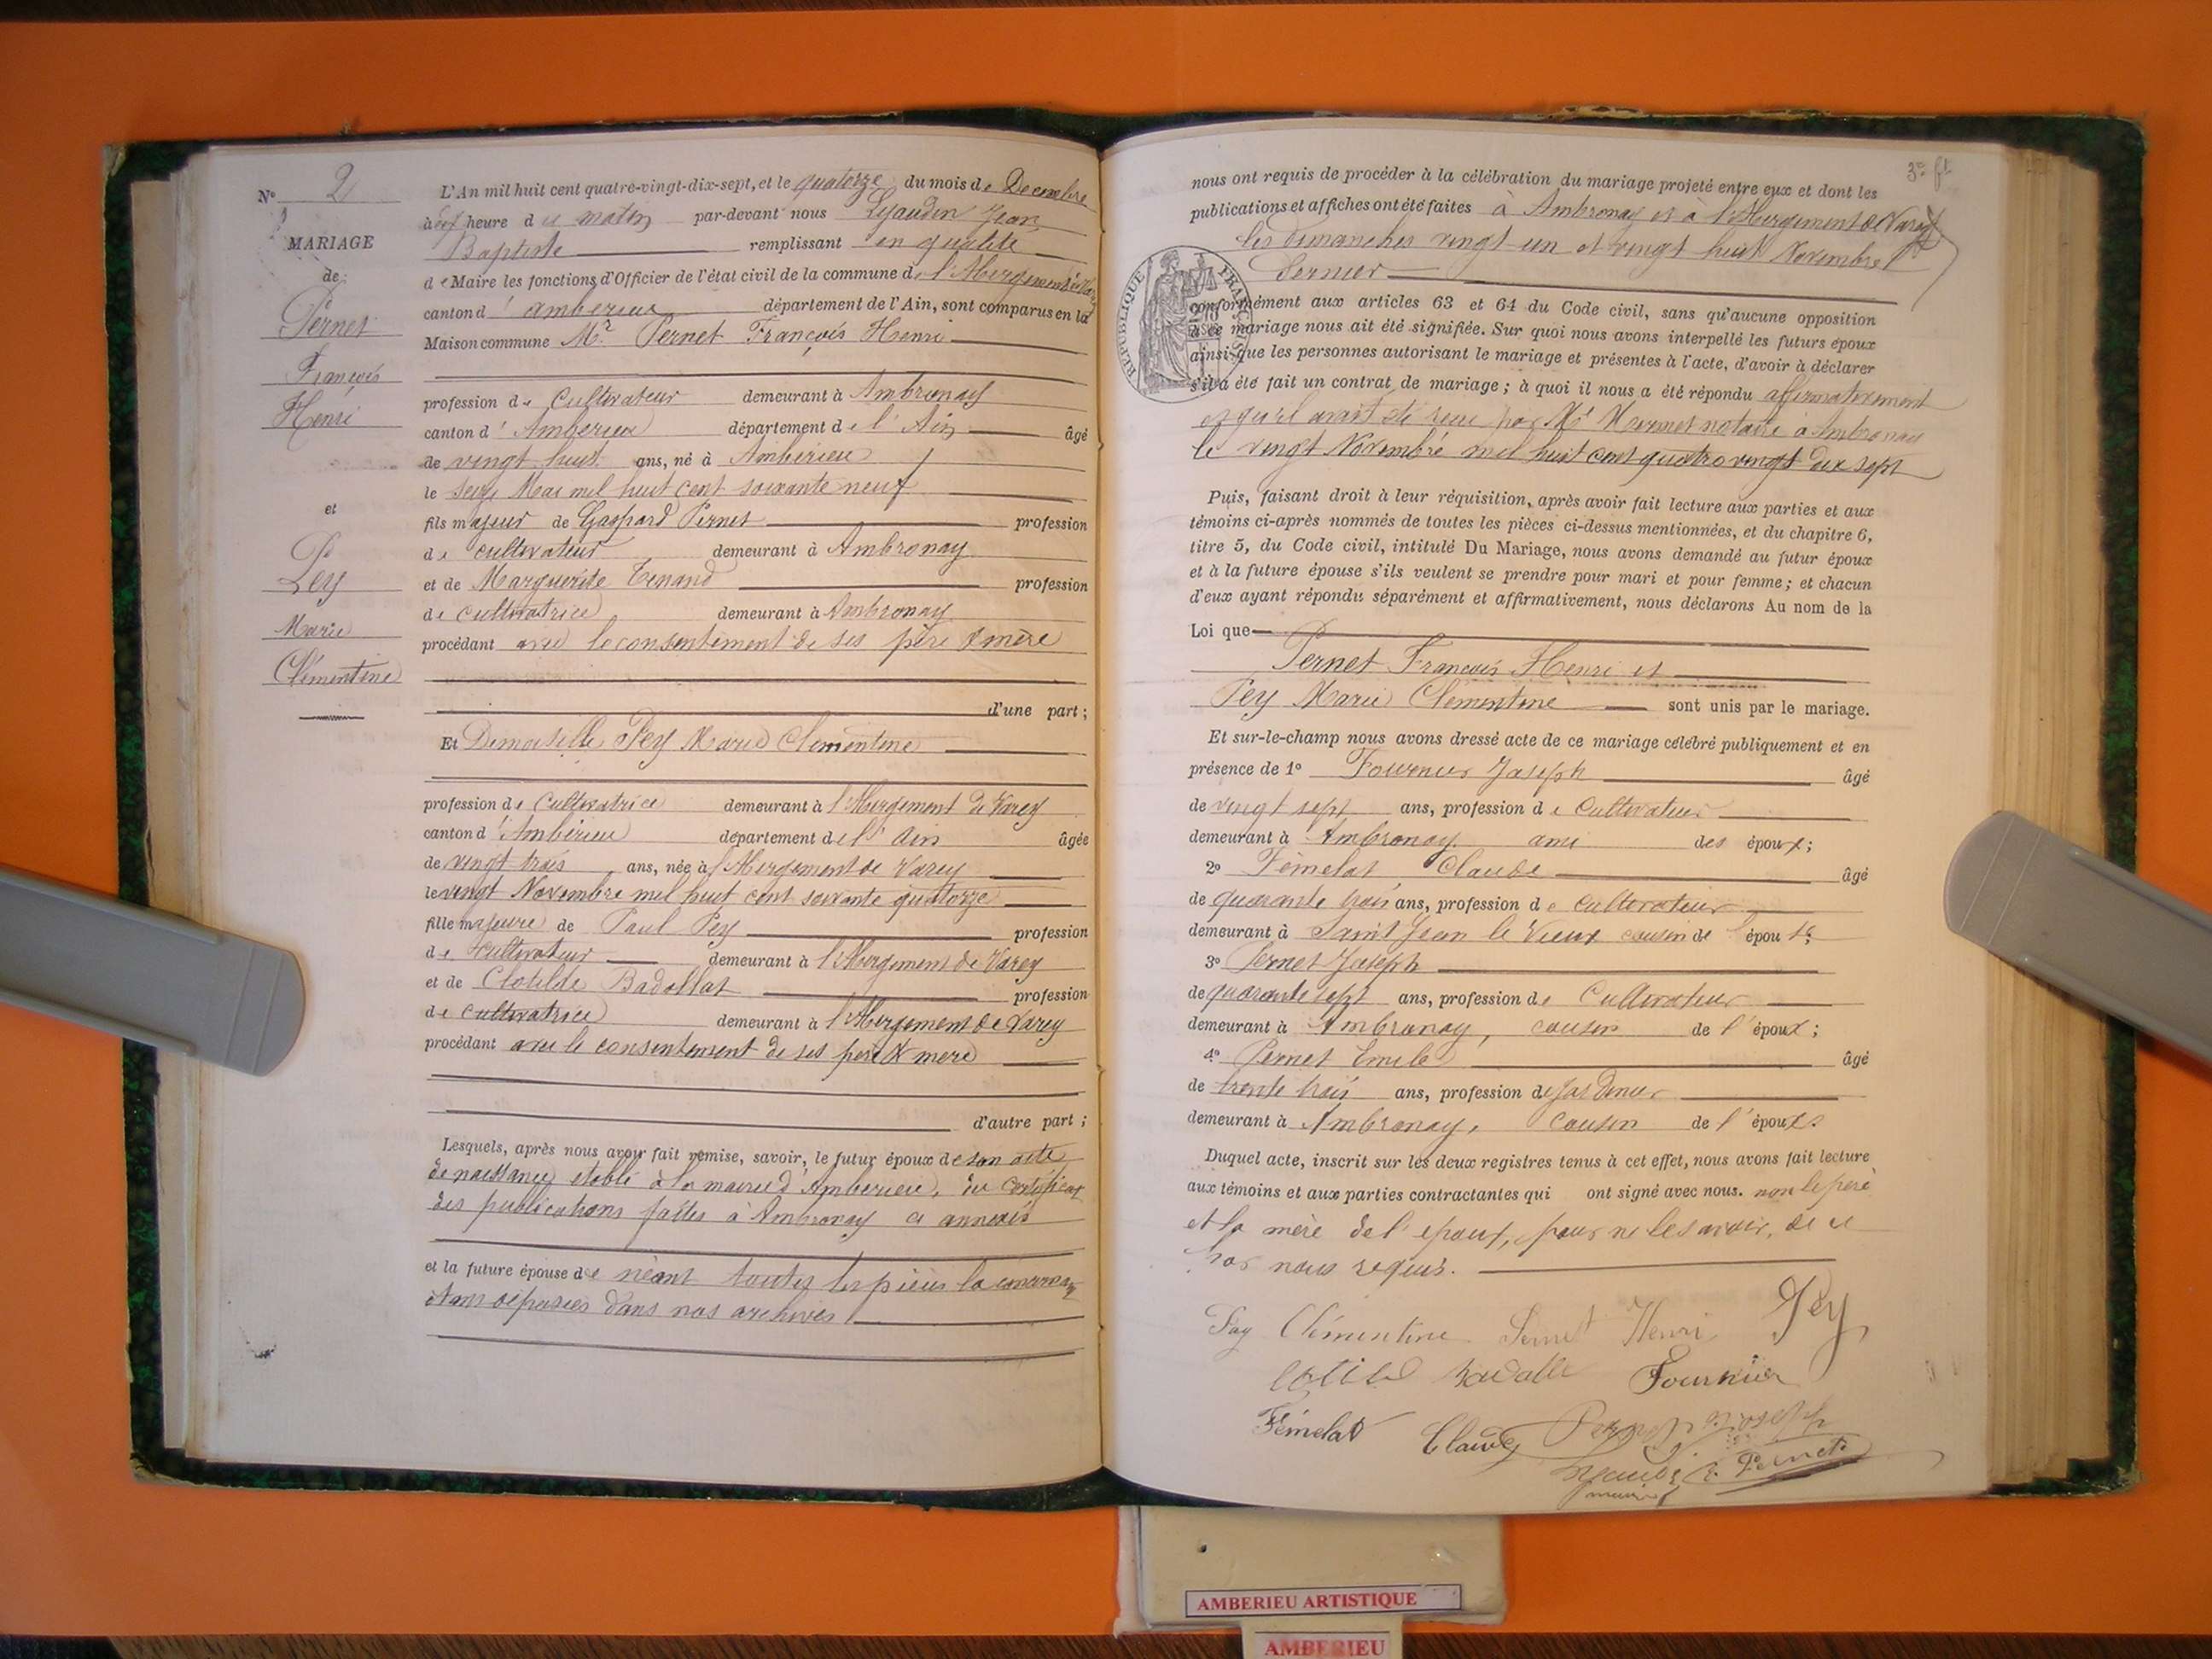 Nº 2
MARIAGE
de
Pernet
François
Henri
et
Pey
Marie
Clémentine
L'An mil huit cent quatre-vingt-dix-sept, et le quatorze du mois de Decembre
à dix heure du matin par-devant nous Lyaudin Jean
Baptiste remplissant en qualité
de Maire les fonctions d'Officier de l'état civil de la commune de l'Abergement de Varey
canton d'amberieu département de l'Ain, sont comparus en la
Maison commune Mr Pernet François Henri
profession de Cultivateur demeurant à Ambronay
canton d'Amberieu département de l'Ain âgé
de vingt huit ans, né à Ambérieu
le seize Mai mil huit cent soixante neuf
fils majeur de Gaspard Pernet profession
de cultivateur demeurant à Ambronay
et de Marguerite Tenand profession
de cultivatrice demeurant à Ambronay
procédant avec le consentement de ses père & mère
d'une part ;
Et Demoiselle Pey Marie Clementine
profession de Cultivatrice demeurant à l'Abergement de Varey
canton d'Ambérieu département de l'Ain âgée
de vingt trois ans, née à l'Abergement de Varey
le vingt Novembre mil huit cent soixante quatorze
fille majeure de Paul Pey profession
de cultivateur demeurant à l'Abergement de Varey
et de Clotilde Badollat profession
de cultivatrice demeurant à l'Abergement de Varey
procédant avec le consentement de ses père & mère
d'autre part ;
Lesquels, après nous avoir fait remise, savoir, le futur époux de son acte
de naissance établi à la mairie d'Amberieu, du certificat
des publications faites à Ambronay ci annexés
et la future épouse de néant toutes les pièces la concernant
étant déposées dans nos archives
3e ft
nous ont requis de procéder à la célébration du mariage projeté entre eux et dont les
publications et affiches ont été faites à Ambronay et à l'Abergement de Varey
les dimanches vingt-un et vingt huit Novembre
dernier
RÉPUBLIQUE FRANÇAISE
conformément aux articles 63 et 64 du Code civil, sans qu'aucune opposition
à ce mariage nous ait été signifiée. Sur quoi nous avons interpellé les futurs époux
ainsi que les personnes autorisant le mariage et présentes à l'acte, d'avoir à déclarer
s'il a été fait un contrat de mariage ; à quoi il nous a été répondu affirmativement
et qu'il avait été reçu par Me Mermet notaire à Ambronay
le vingt Novembre mil huit cent quatre vingt dix sept
Puis, faisant droit à leur réquisition, après avoir fait lecture aux parties et aux
témoins ci-après nommés de toutes les pièces ci-dessus mentionnées, et du chapitre 6,
titre 5, du Code civil, intitulé Du Mariage, nous avons demandé au futur époux
et à la future épouse s'ils veulent se prendre pour mari et pour femme ; et chacun
d'eux ayant répondu séparément et affirmativement, nous déclarons Au nom de la
Loi que
Pernet François Henri et
Pey Marie Clémentine sont unis par le mariage.
Et sur-le-champ nous avons dressé acte de ce mariage célébré publiquement et en
présence de 1º Fournier Joseph âgé
de vingt sept ans, profession de Cultivateur
demeurant à Ambronay ami des époux ;
2º Fémelat Claude âgé
de quarante trois ans, profession de cultivateur
demeurant à Saint Jean le Vieux cousin de l'épouse
3º Pernet Joseph
de quarante sept ans, profession de Cultivateur
demeurant à Ambronay, cousin de l'époux ;
4º Pernet Emile âgé
de trente trois ans, profession de Jardinier
demeurant à Ambronay, cousin de l'époux
Duquel acte, inscrit sur les deux registres tenus à cet effet, nous avons fait lecture
aux témoins et aux parties contractantes qui ont signé avec nous. non le père
et la mère de l'époux, pour ne le savoir, de ce
par nous requis.
Pey Clémentine Pernet Henri Pey
Badolla Fournier
Fémelat Claude Pernet Joseph
E. Pernet
AMBERIEU ARTISTIQUE
AMBERIEU